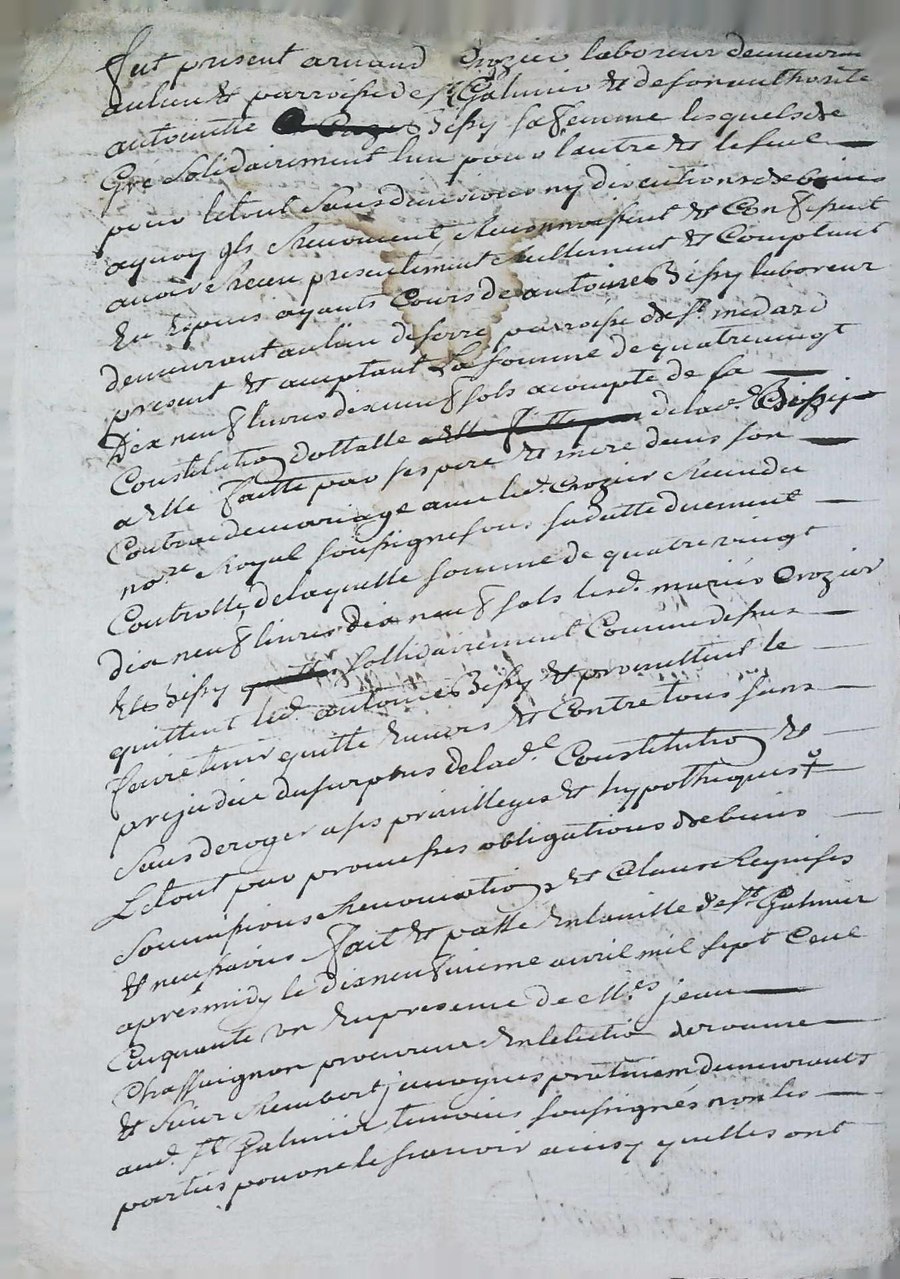 fut present arnaud Crozier laboreur demeurant
au lieu & parroisse de st Galmier & de son authorité
antoinette Bissy sa femme lesquels de
Gre solidairement lun pour lautre & le seul
pour le tout sans division ny discution de biens
aquoy ils Renoncent, Reconnoissent & Confessent
avoir Receu presentement reellement & Comptant
En Especes ayants Cours de antoine Bissy laboreur
demeurant au lieu de parroisse de st medard
present & acceptant La somme de quatre vingt
Dix neuf livres dix neuf sols acompte de sa
Constitution dottalle de lad.e Bissy
a Elle faitte par ses pere & mere dans son
Contrat de mariage avec led. Crozier Receu du
no.re Royal soussigné sous sa datte duement
Controllé, de laquelle somme de quatre vingt
dix neuf livres dix neuf sols lesd. mariés Crozier
Et Bissy sollidairement Comme dessus
quittent led. antoine Bissy & promettent le
faire tenir quitte Envers & Contre tous sans
prejudice du surplus de lad.e Constitution &
sans deroger a ses privilleges & hypotheques
Le tout par promesses obligations de biens
soumissions Renonciations & Clauses Requises
& necessaires fait & passé En la ville de st Galmier
apres midy le dix neufvieme avril mil sept Cent
Cinquante un En presence de M.es jean
Chassaignon procureur En lelection de roanne
& sieur Rambert demeurants
aud. st Galmier temoins soussignés non les
parties pour ne le scavoir ainsy quelles ont